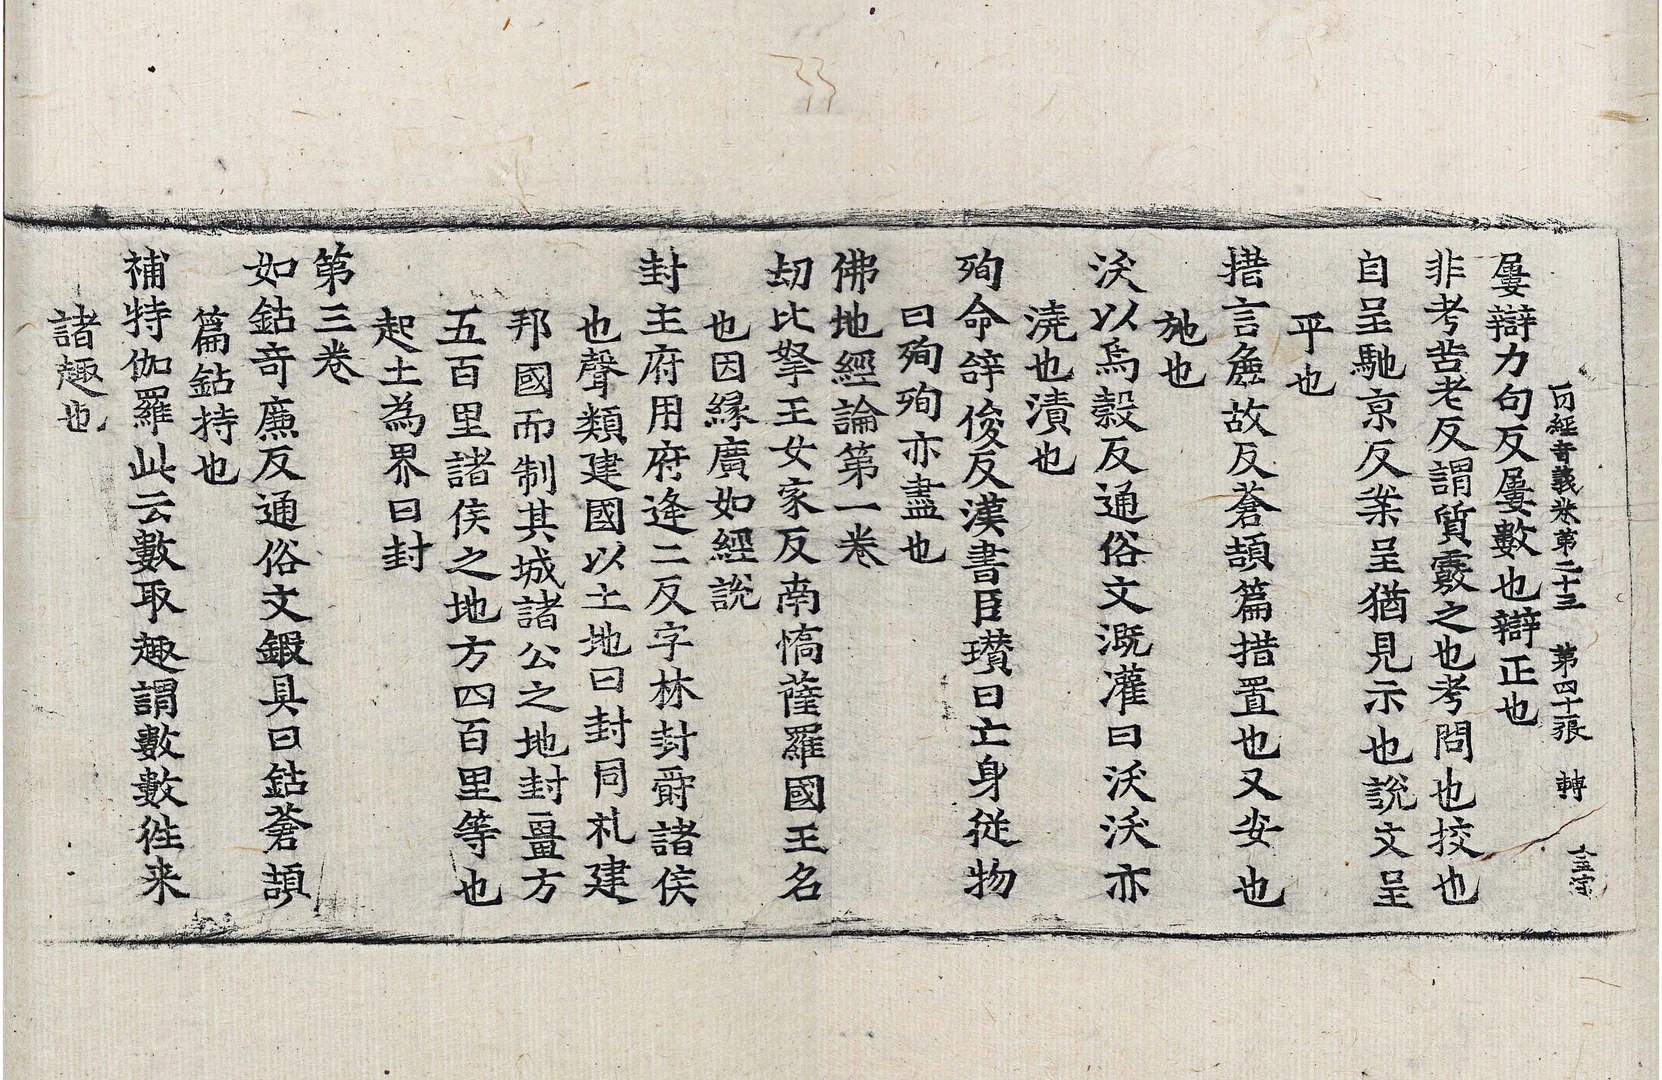 一切經音義卷第二十三 第四十張 轉
屢辯力句反屢數也辯正也
非考苦老反謂質覈之也考問也挍也
自呈馳京反案呈猶見示也說文呈
平也
措言麁故反蒼頡篇措置也又安也
施也
沃以烏穀反通俗文溉灌曰沃沃亦
澆也漬也
殉命辝俊反漢書臣瓚曰亡身從物
曰殉殉亦盡也
佛地經論第一卷
劫比拏王女家反南憍薩羅國王名
也因緣廣如經說
封主府用府逢二反字林封封爵諸侯
也聲類建國以土地曰封同礼建
邦國而制其城諸公之地封畺方
五百里諸侯之地方四百里等也
起土為界曰封
第三卷
如鈷奇廉反通俗文鍜具曰鈷蒼頡
篇鈷持也
補特伽羅此云數取趣謂數數徃来
諸趣也